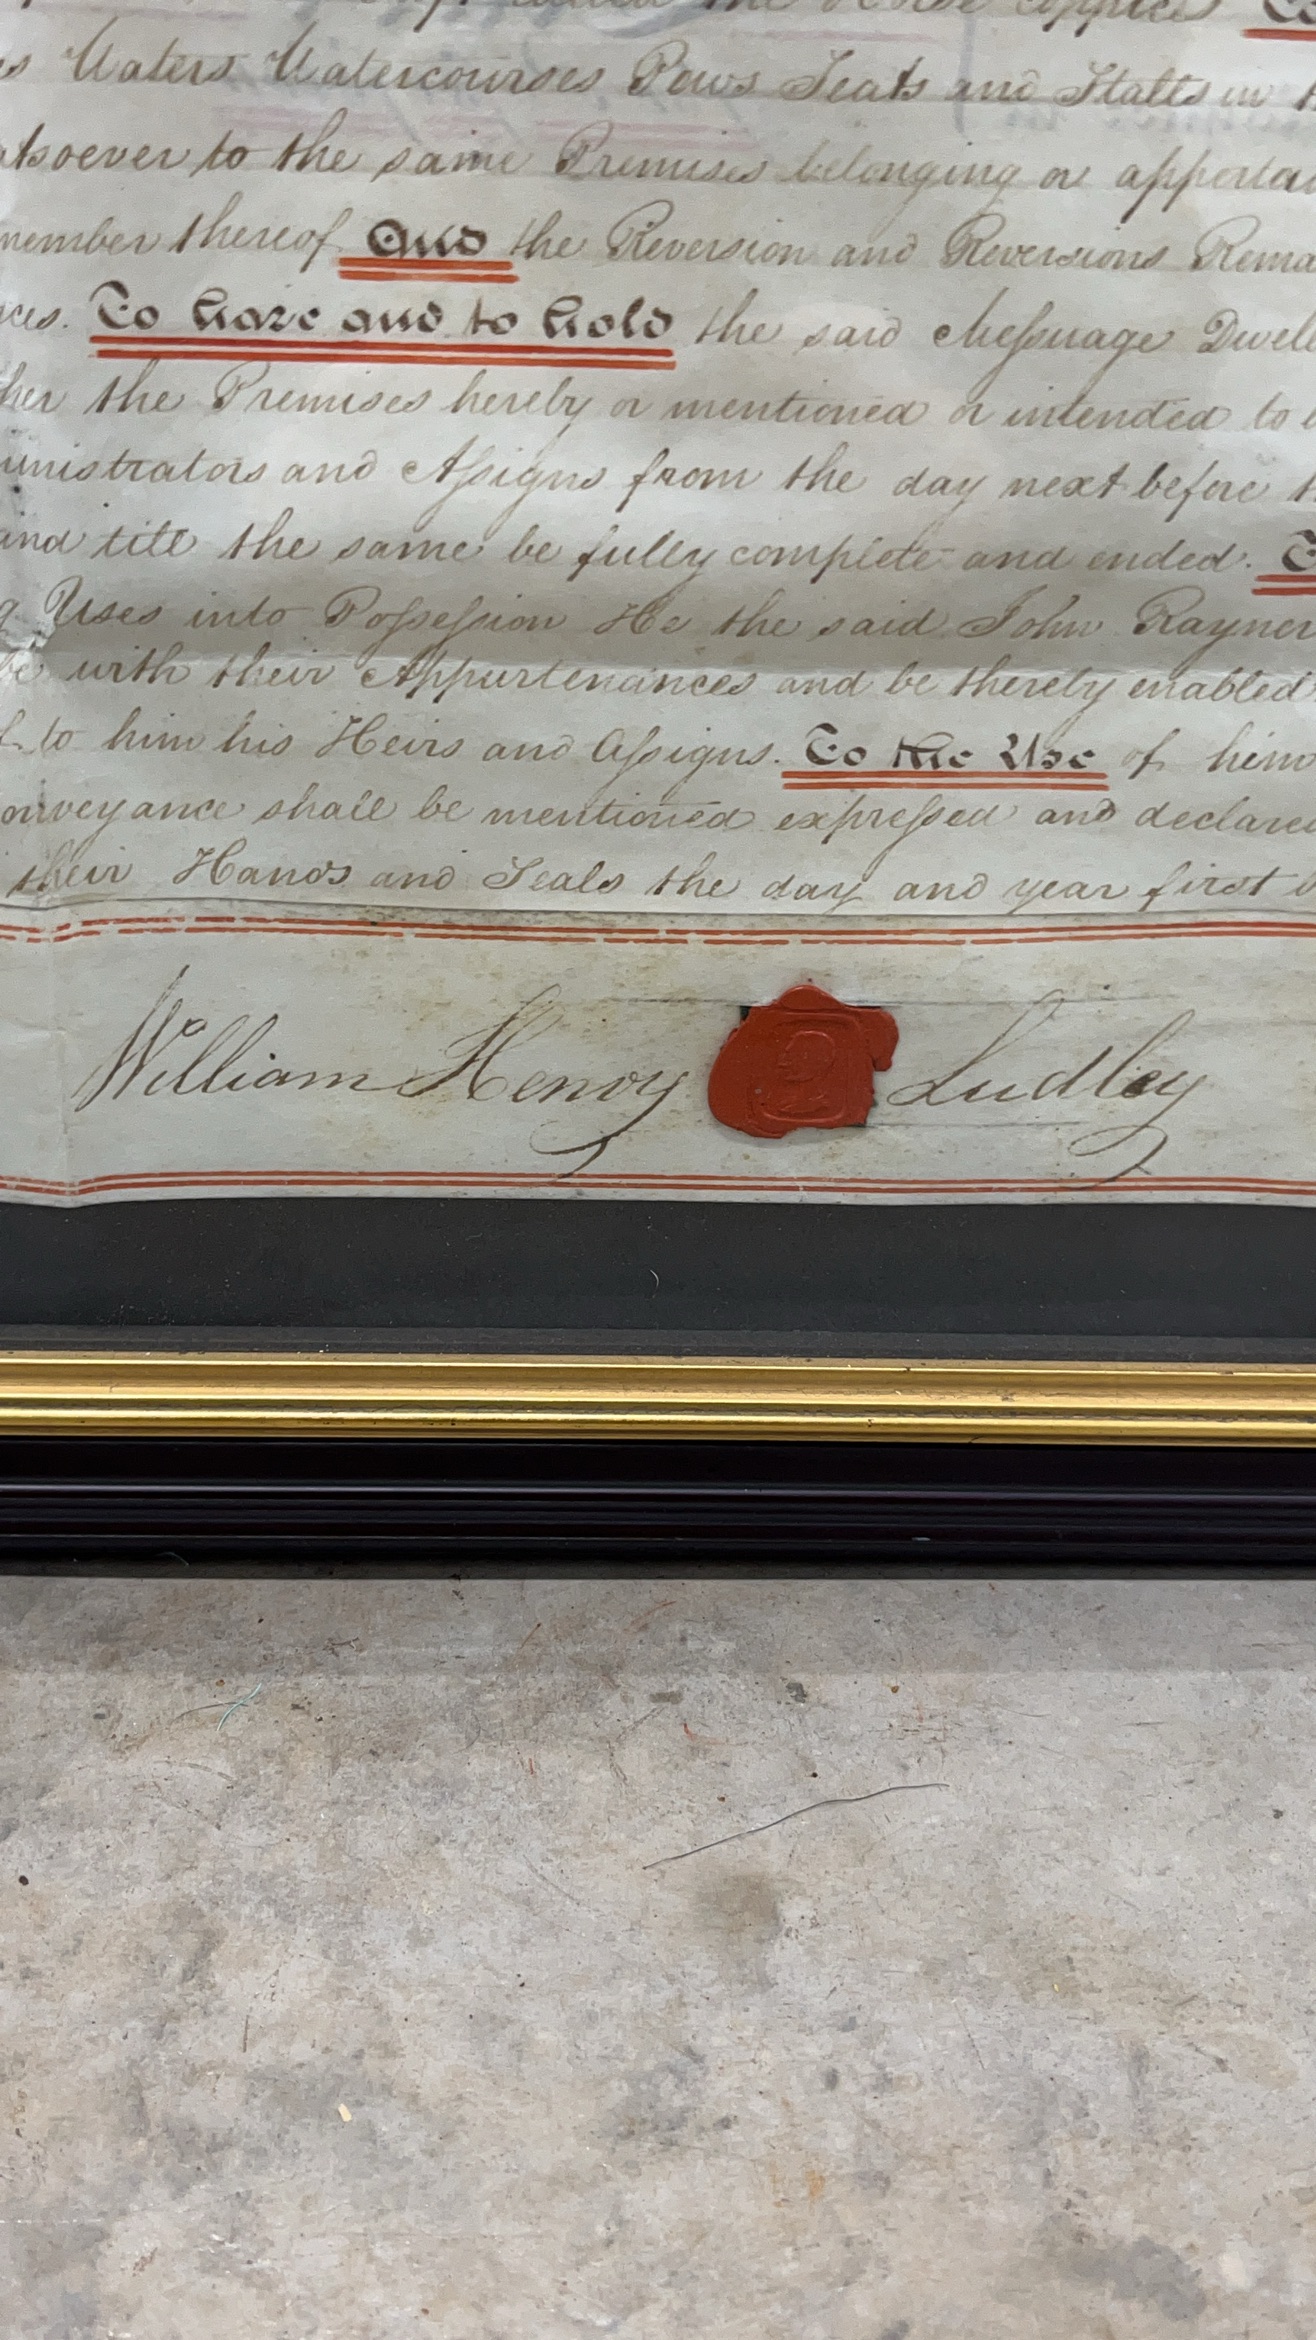 called the
Waters Watercourses Pews Seats and Stalls in
atsoever to the same Premises belonging or appertai
member thereof And the Reversion and Reversions Rema
ces. To have and to hold the said Meſsuage Dwell
her the Premises hereby or mentioned or intended to
ministrators and Aſsigns from the day next before
and till the same be fully complete and ended.
g Uses into Poſseſsion He the said John Rayner
be with their Appurtenances and be thereby enabled
to him his Heirs and Aſsigns. To the Use of him
onveyance shall be mentioned expreſsed and declared
their Hands and Seals the day and year first
William Henry Ludley